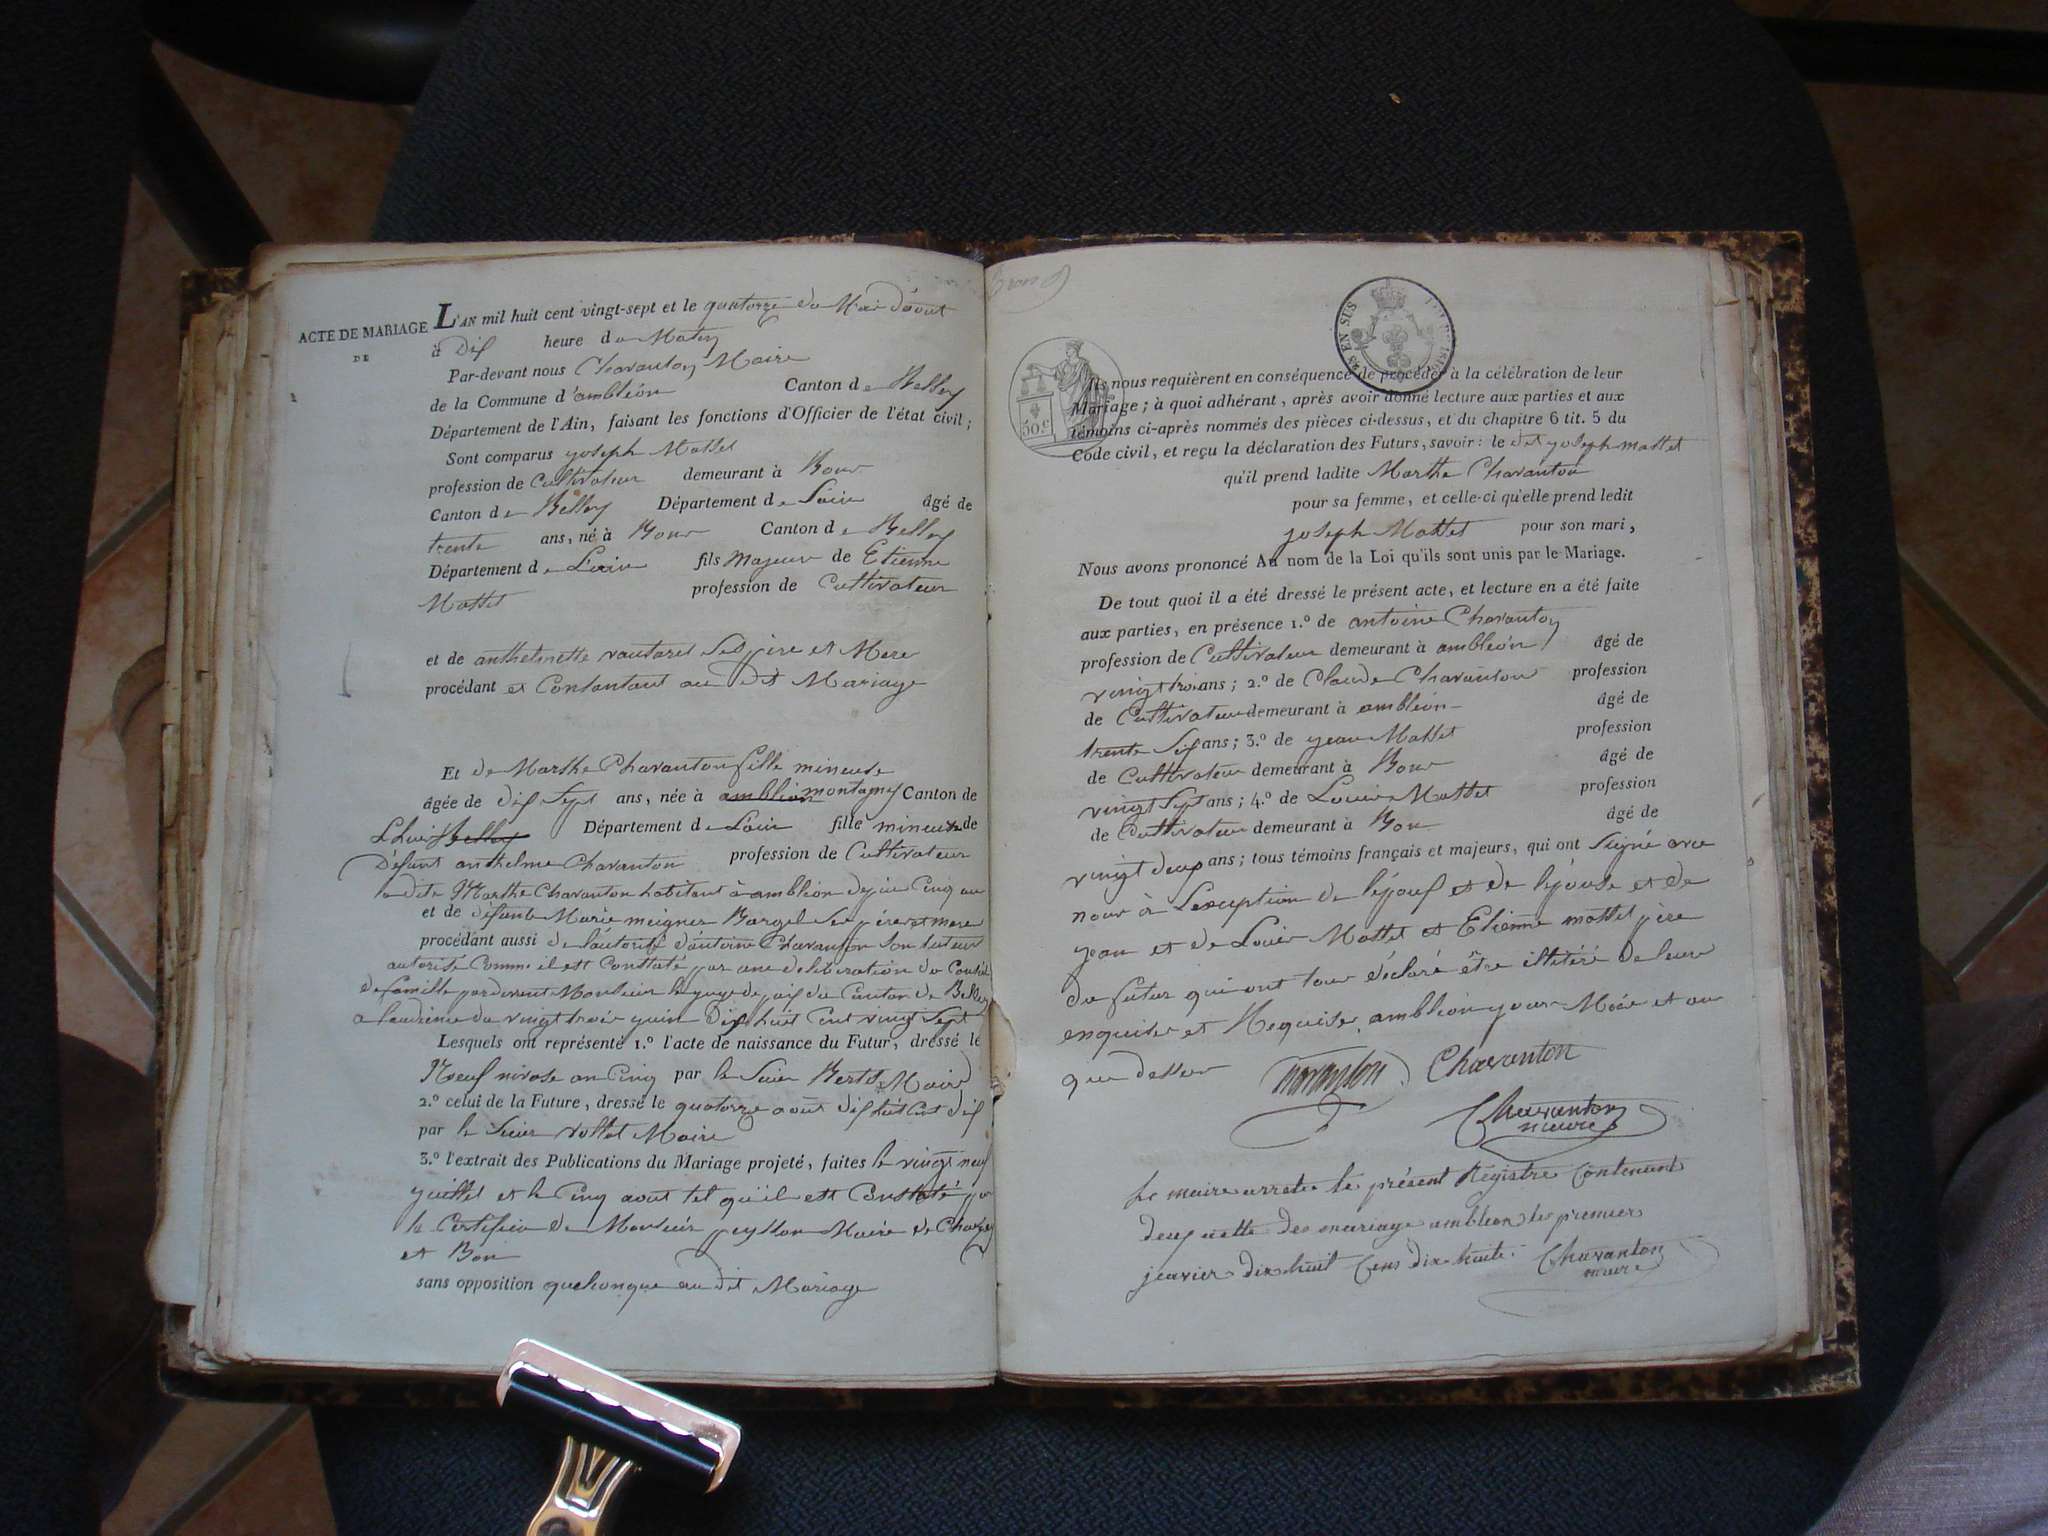 ACTE DE MARIAGE
DE
L'AN mil huit cent vingt-sept et le quatorze du Moi d'aout
à Dix heure du Matin
Par-devant nous Chavanton Maire
de la Commune d'ambléon Canton de Belley
Département de l'Ain, faisant les fonctions d'Officier de l'état civil;
Sont comparus joseph Mottet
profession de Cultivateur demeurant à Bons
Canton de Belley Département de Lain âgé de
trente ans, né à Bons Canton de Belley
Département de Lain fils Majeur de Etienne
Mottet profession de Cultivateur
et de anthelmette ses père et Mere
procédant et Contantant au dit Mariage
Et de Marthe Chavanton fille mineuse
âgée de dix sept ans, née à amblion montagny Canton de
Lhuis Belley Département de Lain fille mineure de
Défunt anthelme Chavanton profession de Cultivateur
la dite Marthe Chavanton habitant à amblion depuis Cinq an
et de défunte Marie meignier Borgel Ses père et mere
procédant aussi de l'autorité d'antoine Chavanton Son tuteur
autorisé Comme il est Constaté par une deliberation du Conseil
de famille pardevant Monsieur le juge de paix du Canton de Belley
a laudience du vingt trois juin dix huit cent vingt Sept
Lesquels ont représenté 1.º l'acte de naissance du Futur, dressé le
Neuf nivose an Cinq par le Sieur Bertet Maire
2.º celui de la Future, dressé le quatorze août dix huit Cent dix
par le Sieur Mollet Maire
3.º l'extrait des Publications du Mariage projeté, faites le vingt neuf
juillet et le Cinq aout tel qu'il est Constaté par
le Certificat de Monsieur peysson Maire de Chazey
et Bon
sans opposition quelconque au dit Mariage
50 c
RS EN SUS
Ils nous requièrent en conséquence de procéder à la célébration de leur
Mariage; à quoi adhérant, après avoir donné lecture aux parties et aux
témoins ci-après nommés des pièces ci-dessus, et du chapitre 6 tit. 5 du
Code civil, et reçu la déclaration des Futurs, savoir: le dit joseph mottet
qu'il prend ladite Marthe Chavanton
pour sa femme, et celle-ci qu'elle prend ledit
joseph Mottet pour son mari,
Nous avons prononcé Au nom de la Loi qu'ils sont unis par le Mariage.
De tout quoi il a été dressé le présent acte, et lecture en a été faite
aux parties, en présence 1.º de antoine Chavanton
profession de Cultivateur demeurant à ambléon âgé de
vingt trois ans; 2.º de Claude Chavanton profession
de Cultivateur demeurant à ambléon âgé de
trente Six ans; 3.º de jean Mottet profession
de Cultivateur demeurant à Bons âgé de
vingt Sept ans; 4.º de Louis Mottet profession
de Cultivateur demeurant à Bon âgé de
vingt deux ans; tous témoins français et majeurs, qui ont Signé avec
nous à Lexception de lépoux et de lépouse et de
jean et de Louis Mottet et Etienne mottet père
du futur qui ont tous déclaré être illitéré de leurs
enquise et Requise, amblion jour Mois et an
que dessus Chavanton Chavanton
Chavanton
maire
Le maire arrete le présent Régistre Contenant
deux acttes des mariage amblion le premier
jenvier dix huit Cens dix huite. Chavanton
maire